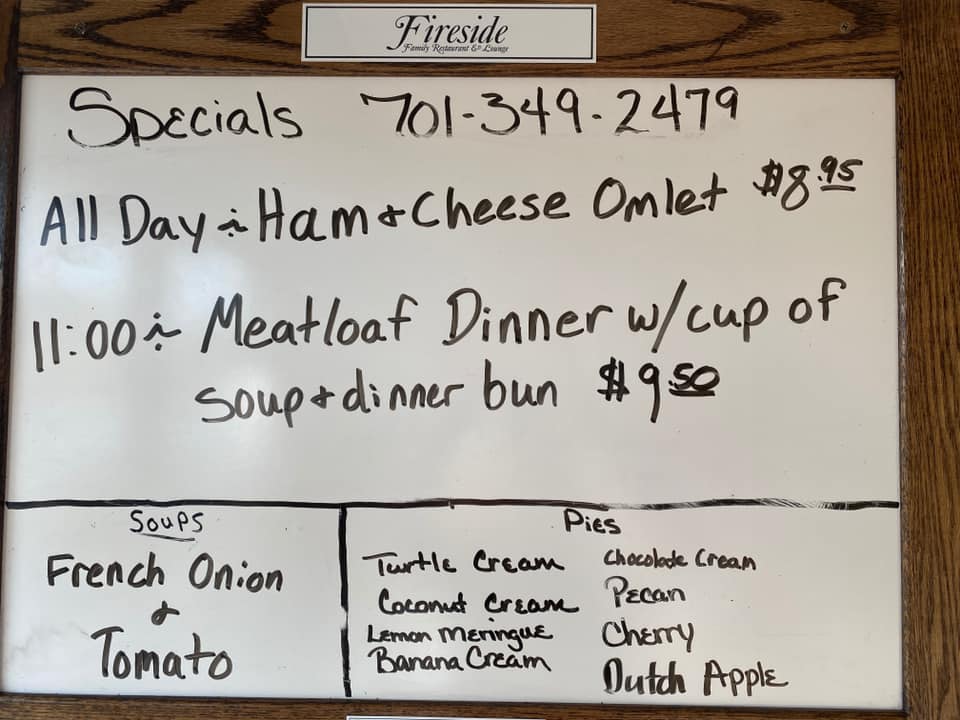 Fireside
Family Restaurant & Lounge
Specials 701-349-2479
All Day ÷ Ham & Cheese Omlet $8.95
11:00 ÷ Meatloaf Dinner w/cup of
soup & dinner bun $9.50
Soups
French Onion
&
Tomato
Pies
Turtle Cream
Coconut Cream
Lemon Meringue
Banana Cream
Chocolate Cream
Pecan
Cherry
Dutch Apple